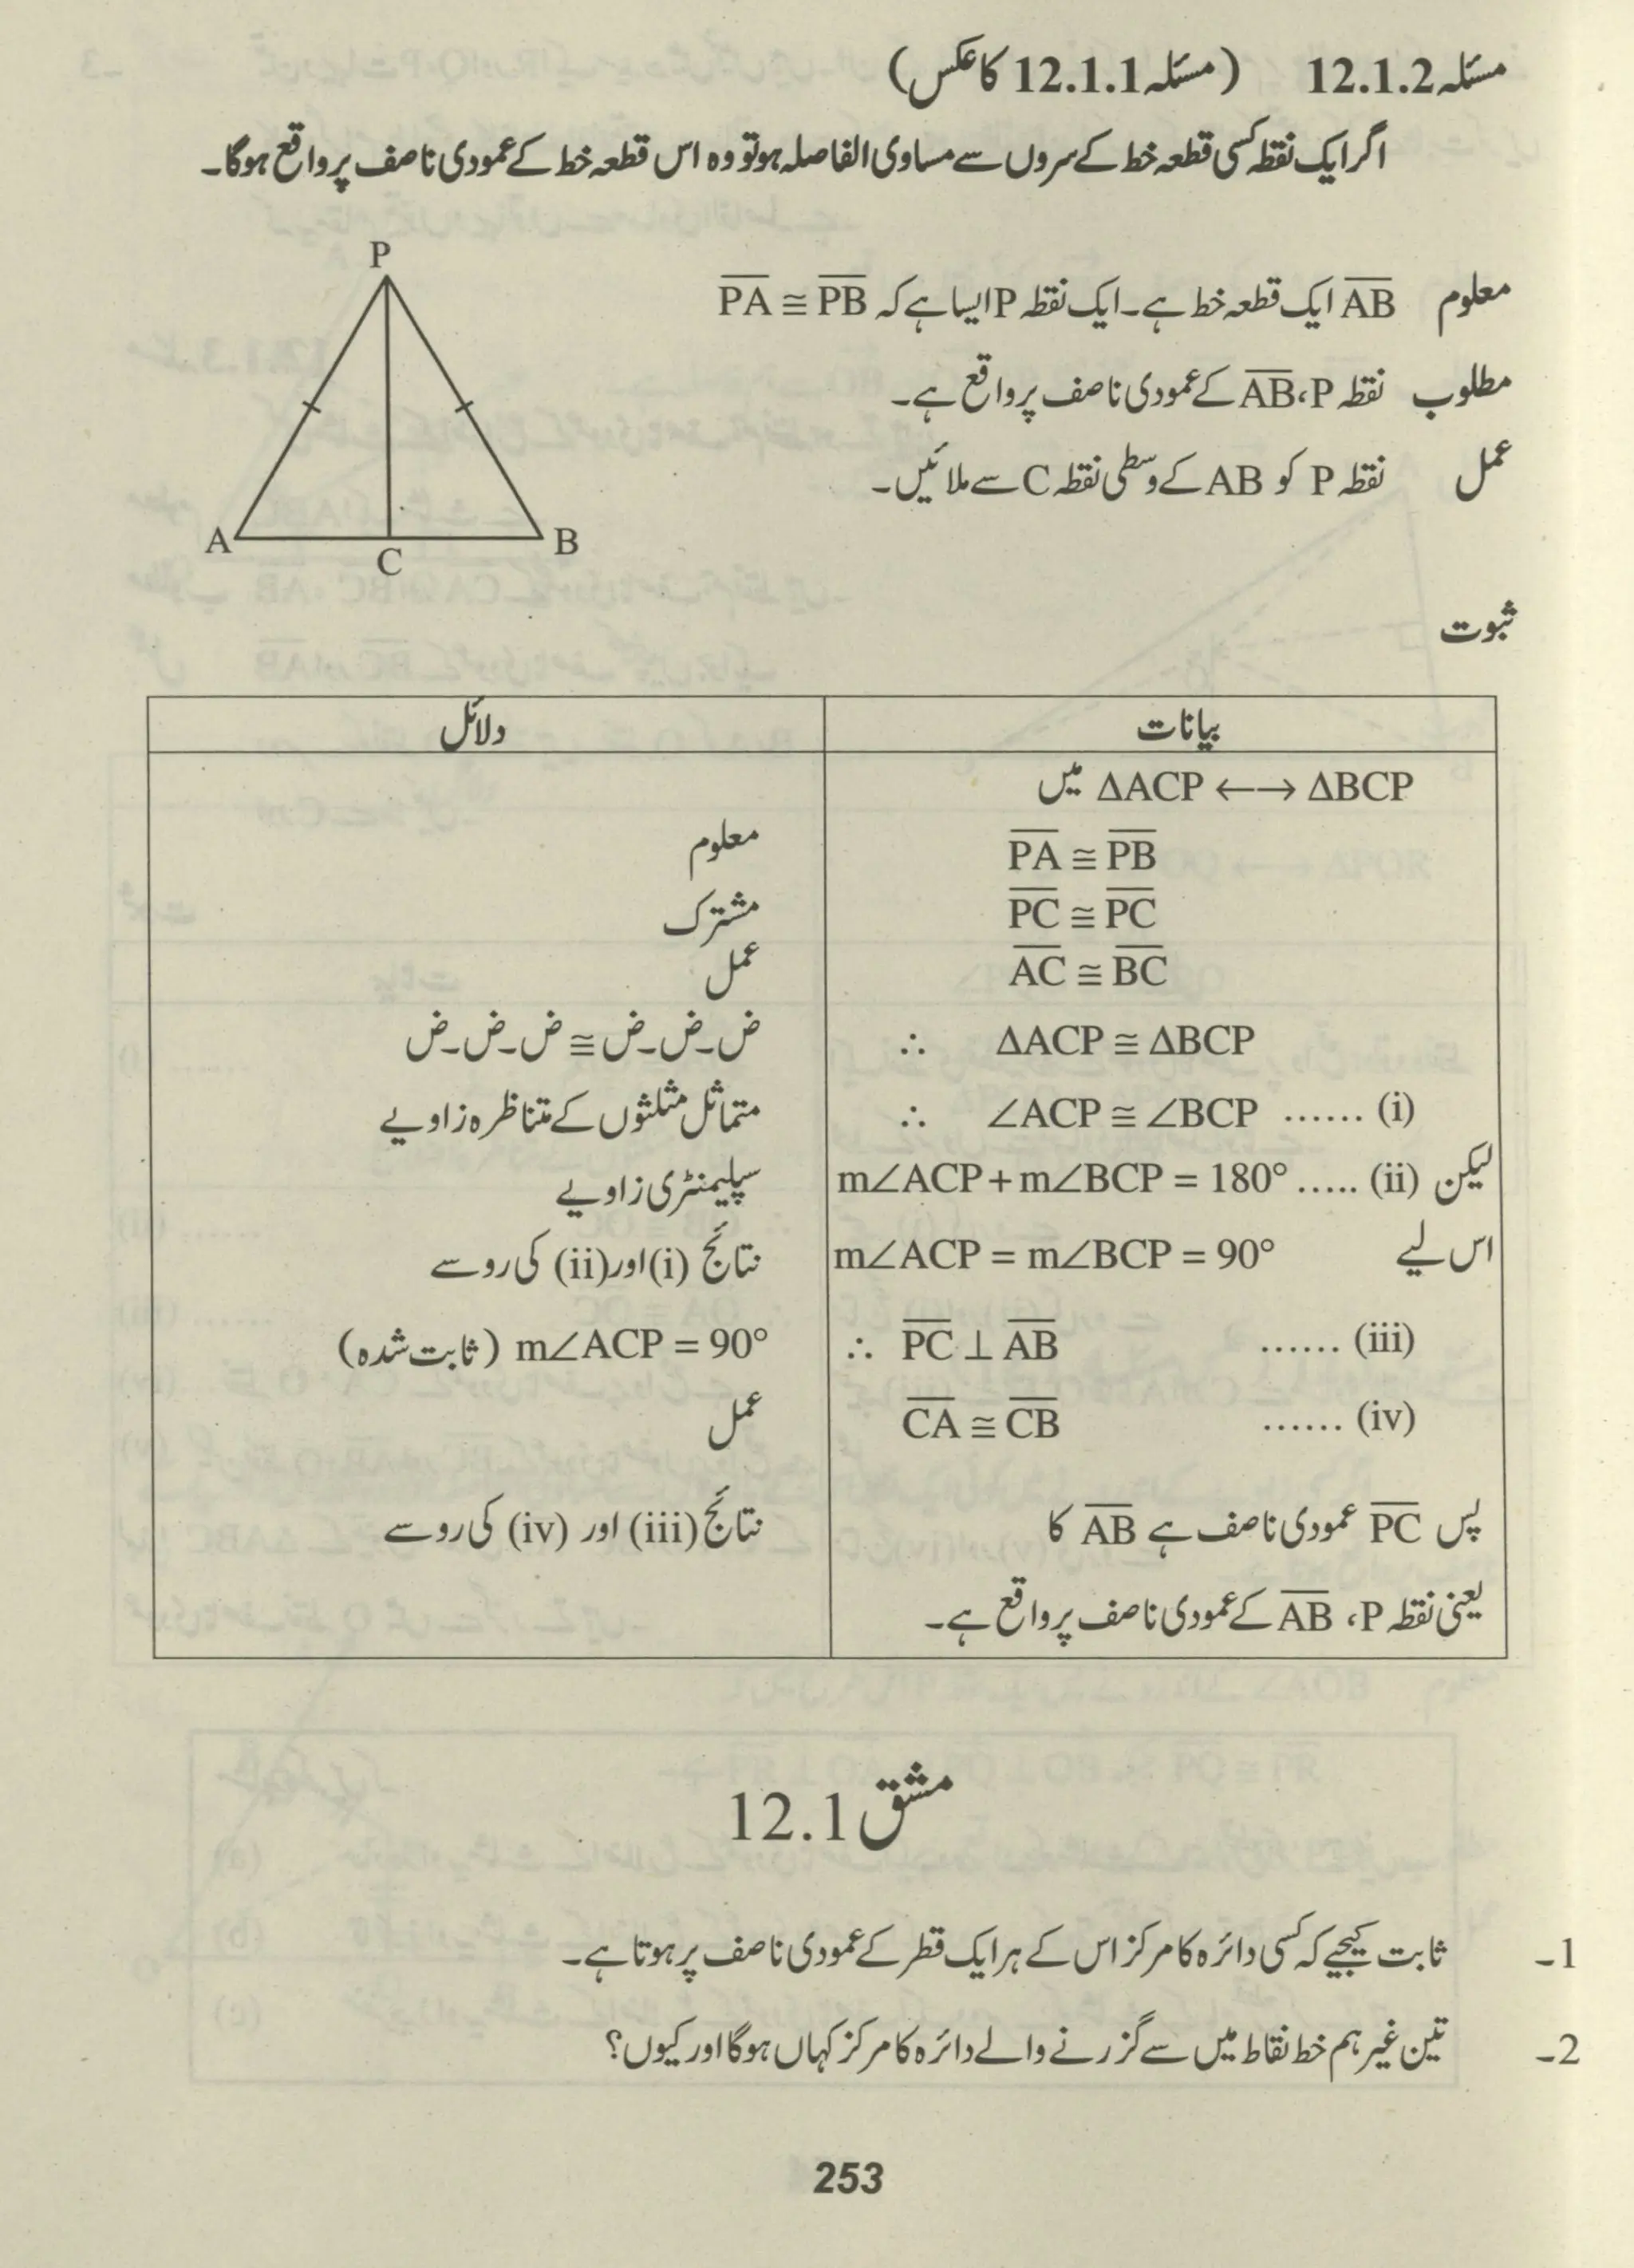 مسئلہ 12.1.2 (مسئلہ 12.1.1 کا عکس)
اگر ایک نقطہ کسی قطعہ خط کے سروں سے مساوی الفاصلہ ہو تو وہ اس قطعہ خط کے عمودی ناصف پر واقع ہوگا۔
معلوم A̅B̅ ایک قطعہ خط ہے۔ ایک نقطہ P ایسا ہے کہ P̅A̅ ≅ P̅B̅
مطلوب نقطہ P، A̅B̅ کے عمودی ناصف پر واقع ہے۔
عمل نقطہ P کو AB کے وسطی نقطہ C سے ملائیں۔
P
A
C
B
ثبوت
بیانات دلائل
ΔACP ←→ ΔBCP میں
P̅A̅ ≅ P̅B̅ معلوم
P̅C̅ ≅ P̅C̅ مشترک
A̅C̅ ≅ B̅C̅ عمل
∴ ΔACP ≅ ΔBCP ض۔ض۔ض ≅ ض۔ض۔ض
∴ ∠ACP ≅ ∠BCP ...... (i) متماثل مثلثوں کے متناظرہ زاویے
لیکن m∠ACP + m∠BCP = 180° ..... (ii) سپلیمنٹری زاویے
اس لیے m∠ACP = m∠BCP = 90° نتائج (i) اور (ii) کی رو سے
∴ P̅C̅ ⊥ A̅B̅ ...... (iii) m∠ACP = 90° (ثابت شدہ)
C̅A̅ ≅ C̅B̅ ...... (iv) عمل
پس P̅C̅ عمودی ناصف ہے A̅B̅ کا نتائج (iii) اور (iv) کی رو سے
یعنی نقطہ P، A̅B̅ کے عمودی ناصف پر واقع ہے۔
مشق 12.1
1۔ ثابت کیجیے کہ کسی دائرہ کا مرکز اس کے ہر ایک قطر کے عمودی ناصف پر ہوتا ہے۔
2۔ تین غیر ہم خط نقاط میں سے گزرنے والے دائرہ کا مرکز کہاں ہوگا اور کیوں؟
253